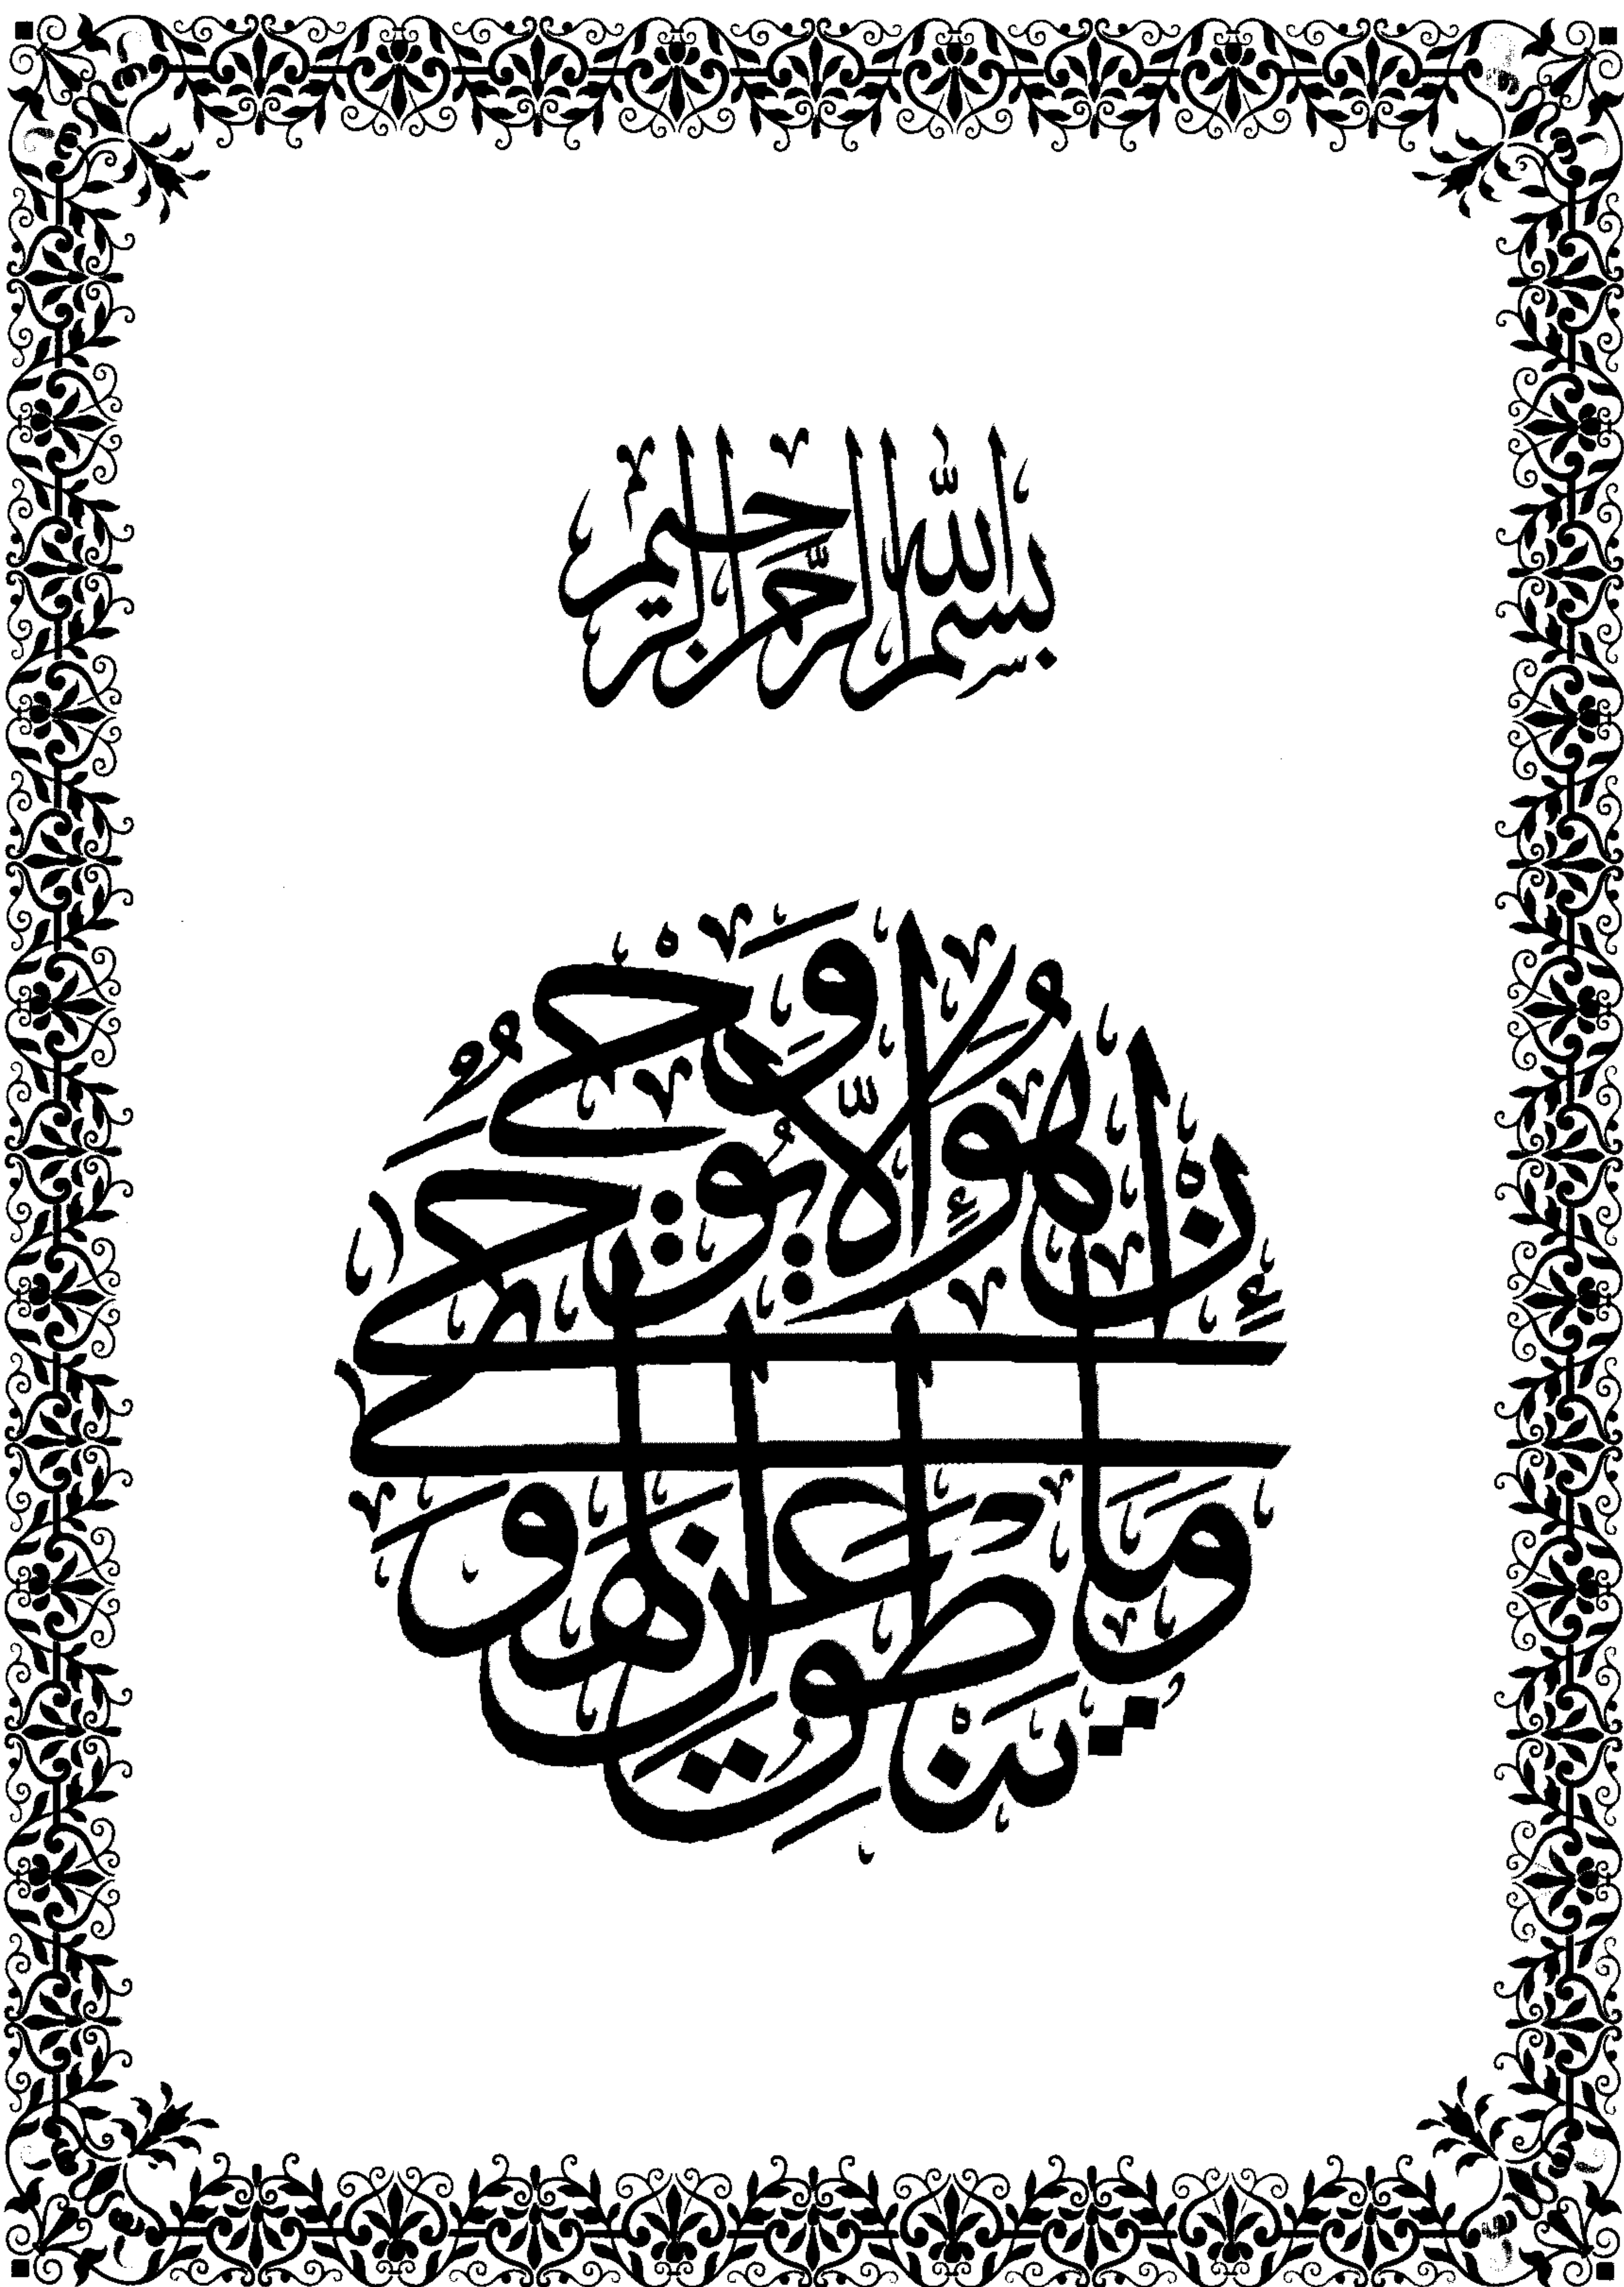 بِسْمِ اللَّهِ الرَّحْمَنِ الرَّحِيمِ
وَمَا يَنْطِقُ عَنِ الْهَوَى إِنْ هُوَ إِلَّا وَحْيٌ يُوحَى